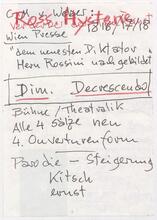 C. M. v. Weber
Rossi Hysterie
Wien Presse 18/18/17/18
"dem neuesten Diktator
Herrn Rossini nachgebildet"
Dim. Decrescendo
Bühne / Theatralik
Alle 4 Sätze neu
4. Ouverturenform
Parodie – Steigerung
Kitsch
ernst